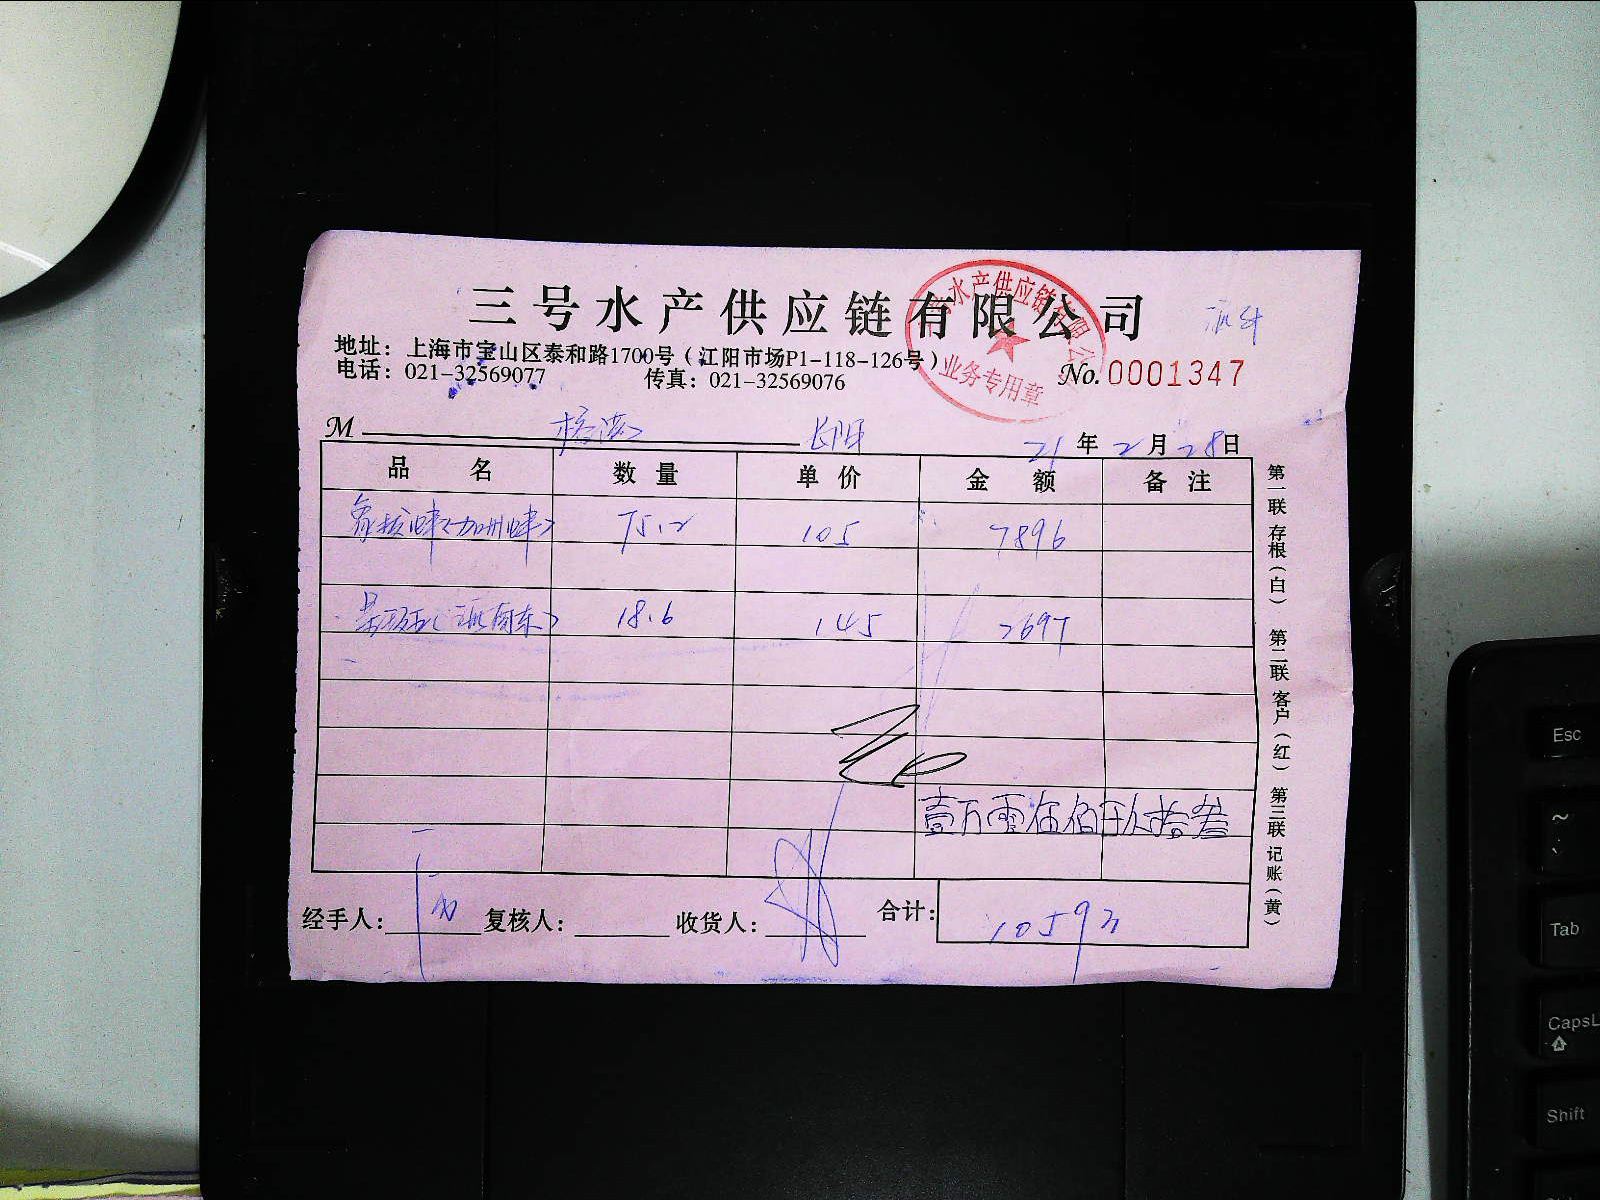 三号水产供应链有限公司
地址：上海市宝山区泰和路1700号（江阳市场P1-118-126号）
电话：021-32569077 传真：021-32569076
No. 0001347
水产供应链有限公
业务专用章
M 长阳 21年2月28日
品名 数量 单价 金额 备注
蚌（加州蚌） 75.2 105 7896
18.6 145 2697
壹万零伍佰玖拾叁
经手人： 复核人： 收货人： 合计： 10593
第一联 存根（白） 第二联 客户（红） 第三联 记账（黄）
Esc
~
Tab
CapsL
Shift